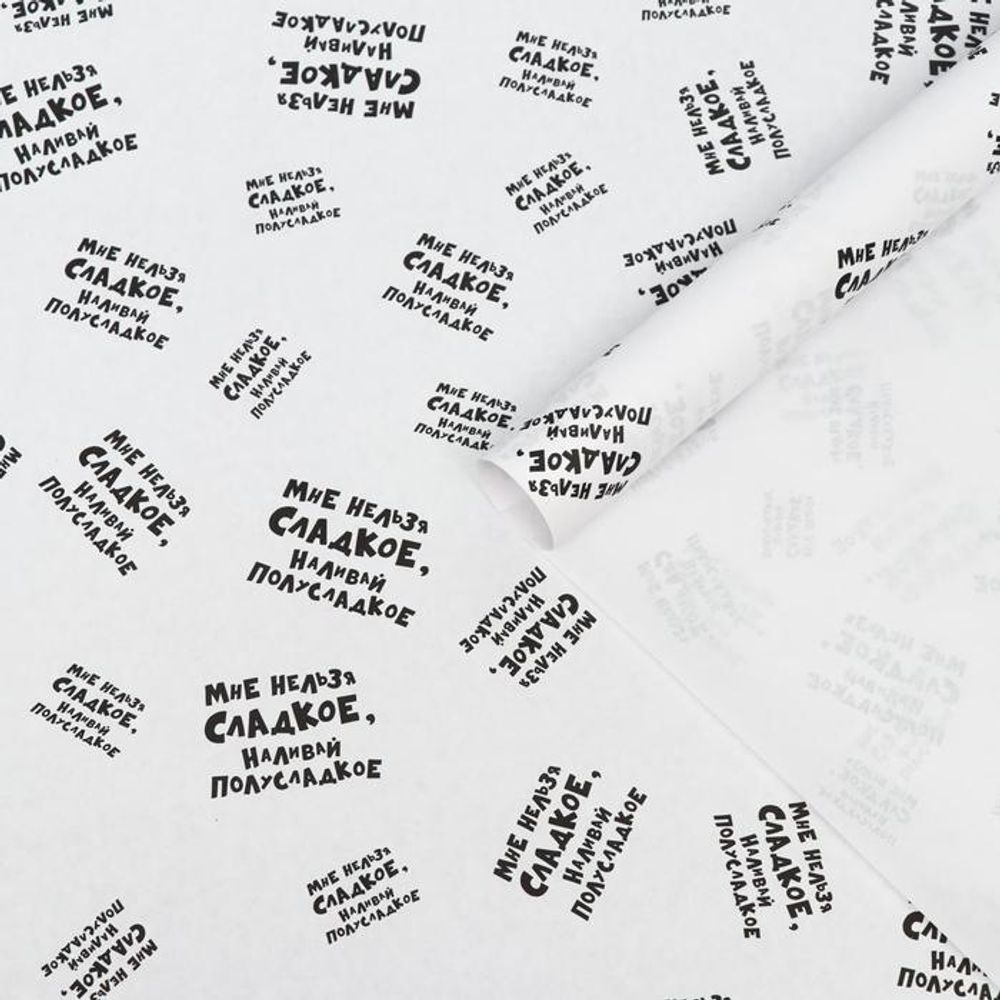 Мне нельзя
сладкое,
наливай
полусладкое
Мне нельзя
сладкое,
наливай
полусладкое
Мне нельзя
сладкое,
наливай
полусладкое
Мне нельзя
сладкое,
наливай
полусладкое
Мне нельзя
сладкое,
наливай
полусладкое
Мне нельзя
сладкое,
наливай
полусладкое
Мне нельзя
сладкое,
наливай
полусладкое
Мне нельзя
сладкое,
наливай
полусладкое
Мне нельзя
сладкое,
наливай
полусладкое
Мне нельзя
сладкое,
наливай
полусладкое
Мне нельзя
сладкое,
наливай
полусладкое
Мне нельзя
сладкое,
наливай
полусладкое
Мне нельзя
сладкое,
наливай
полусладкое
Мне нельзя
сладкое,
наливай
полусладкое
Мне нельзя
сладкое,
наливай
полусладкое
Мне нельзя
сладкое,
наливай
полусладкое
Мне нельзя
сладкое,
наливай
полусладкое
Мне нельзя
сладкое,
наливай
полусладкое
Мне нельзя
сладкое,
наливай
полусладкое